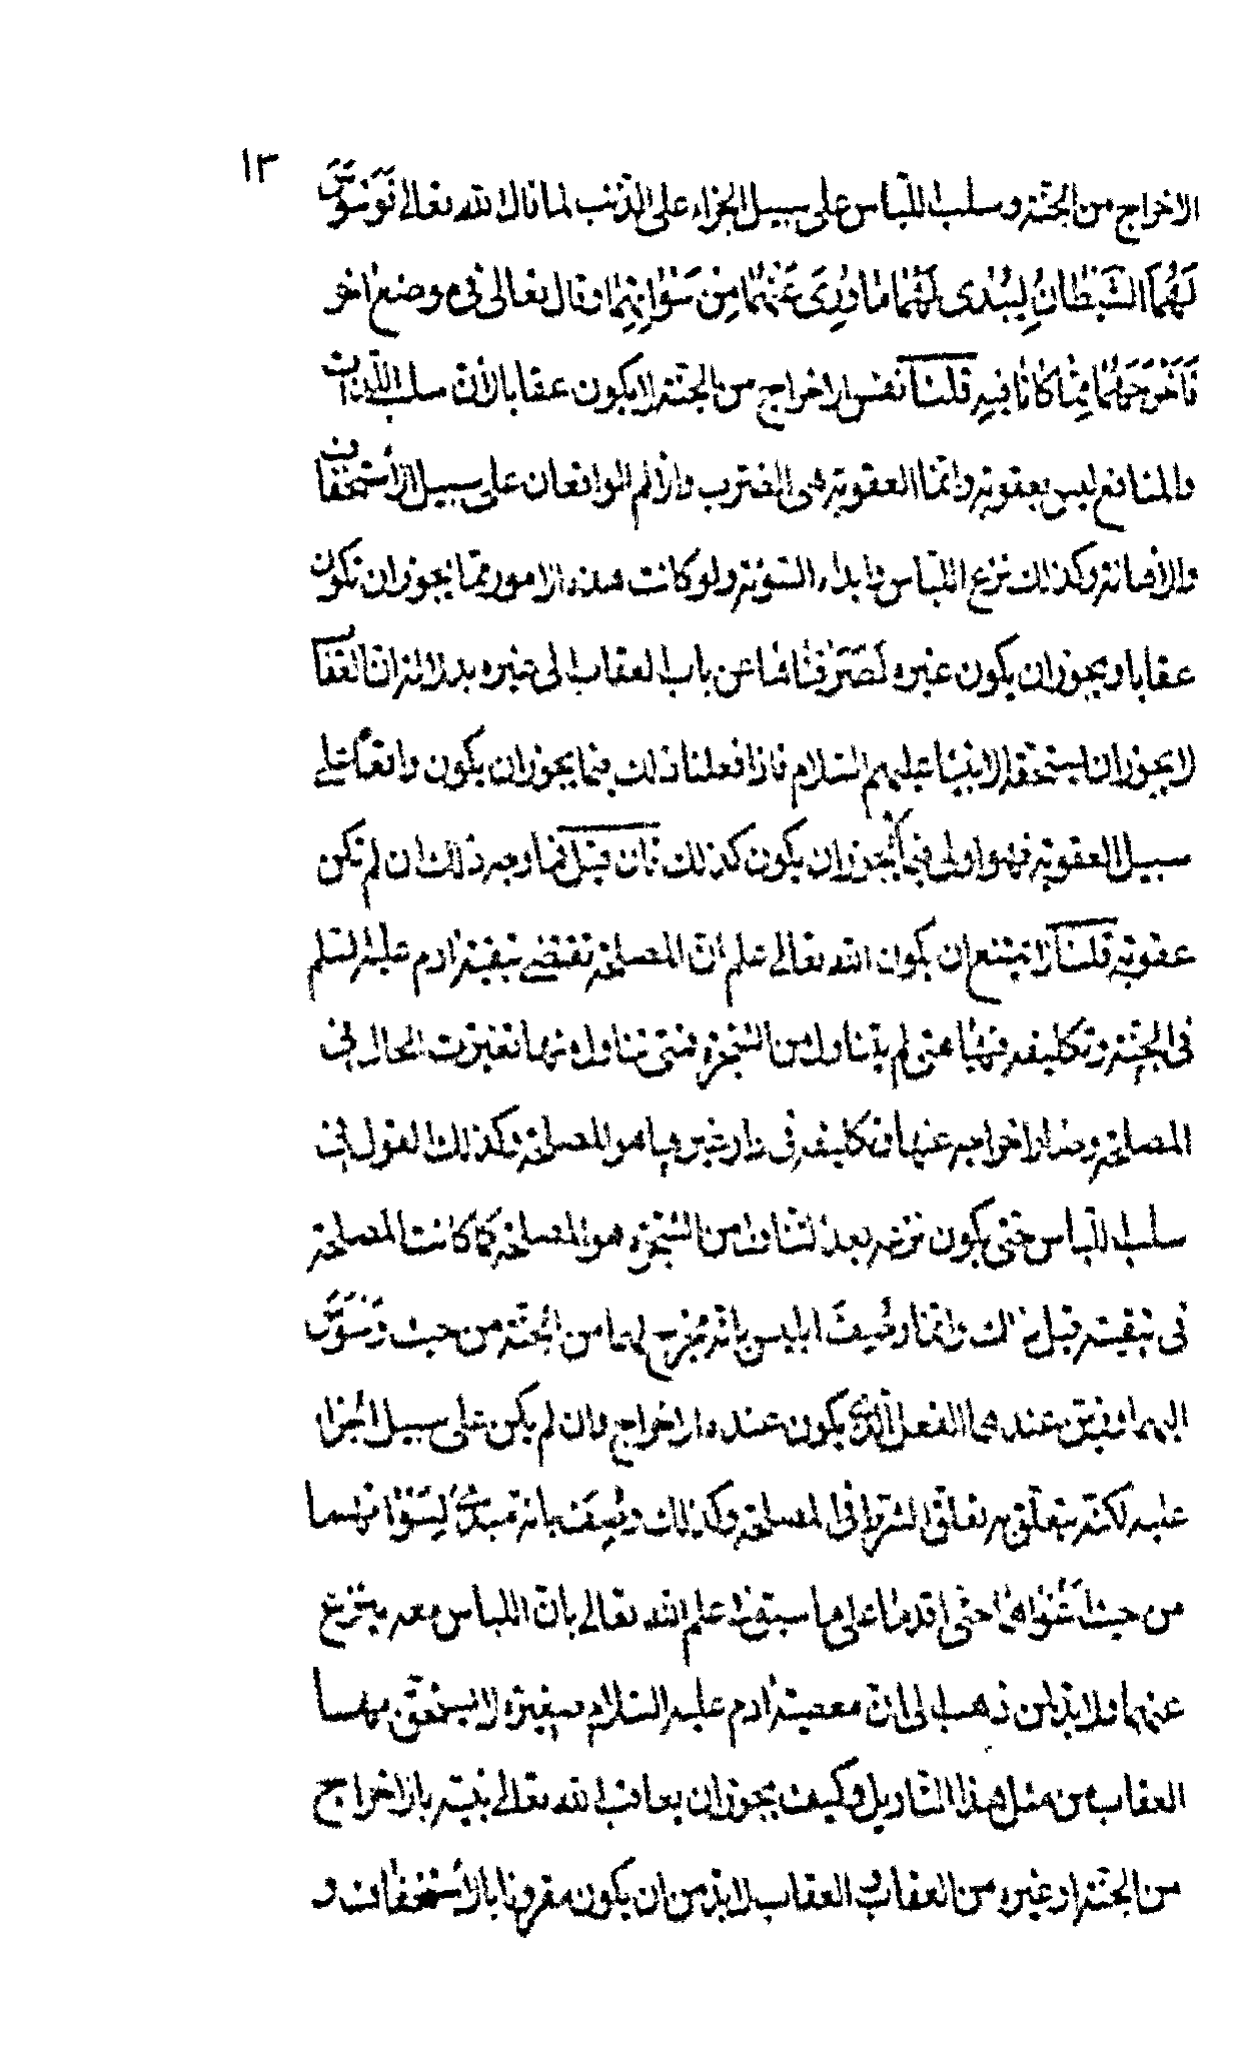 ١٣
الاخراج من الجنّة وسلب اللّباس على سبيل الجزاء على الذّنب لما قال الله تعالى فَوَسْوَسَ
لَهُمَا الشَّيْطَانُ لِيُبْدِى لَهُمَا مَا وُرِىَ عَنْهُمَا مِنْ سَوْاٰتِهِمَا وقال تعالى فى موضع اخر
فَاَخْرَجَهُمَا مِمَّا كَانَا فِيهِ قلنا نفس الاخراج من الجنّة لا يكون عقابا لأنّ سلب اللّذات
والمنافع ليس بعقوبة وانّما العقوبة هى الضّرب والألم الواقعان على سبيل الأستخفاف
والأهانة وكذلك نزع اللّباس وابداء السّوءة ولو كانت هذه الامور ممّا يجوز ان تكون
عقابا ويجوز ان يكون غيره لَصَرَفْنَاهَا عن باب العقاب الى غيره بدلالة انّ العقاب
لا يجوز ان يستحقه الانبياء عليهم السّلام فاذا فعلنا ذلك فيما يجوز ان يكون واقعًا على
سبيل العقوبة فهو اولى فيما لا يجوز ان يكون كذلك فان قيل فما وجه ذلك ان لم تكن
عقوبة قلنا لا يمتنع ان يكون الله تعالى علم انّ المصلحة تقتضى تبقية ادم عليه السّلم
فى الجنّة وتكليفه فيها متى لم يتناول من الشّجرة فمتى تناول منها تغيّرت الحال فى
المصلحة وصار اخراجه عنها وتكليفه فى دار غيرها هو المصلحة وكذلك القول فى
سلب اللّباس حتى يكون نزعه بعد التّناول من الشّجرة هو المصلحة كما كانت المصلحة
فى تبقيته قبل ذلك وانّما وُصِفَ ابليس بانّه مُخْرِج لهما من الجنّة من حيث وَسْوَسَ
اليهما وزيّن عندهما الفعل الّذى يكون عنده الاخراج وان لم يكن على سبيل الجزاء
عليه لكنّه يتعلّق به تعلّق الشّرط فى المصلحة وكذلك وُصِفَ بانّه مُبْدٍ لِسَوْاٰتهما
من حيث اَغْوَاهما حتّى اقدما على ما سبق فى علم الله تعالى بانّ اللباس معه ينزع
عنهما ولا بدّ لمن ذهب الى انّ معصية ادم عليه السّلام صغيرة لا يستحقّ بهسا
العقاب من مثل هذا التّاويل وكيف يجوز ان يعاقب الله تعالى نبيّه بالاخراج
من الجنّة او غيره من العقاب والعقاب لا بدّ من ان يكون مقرونا بالأستخفاف و